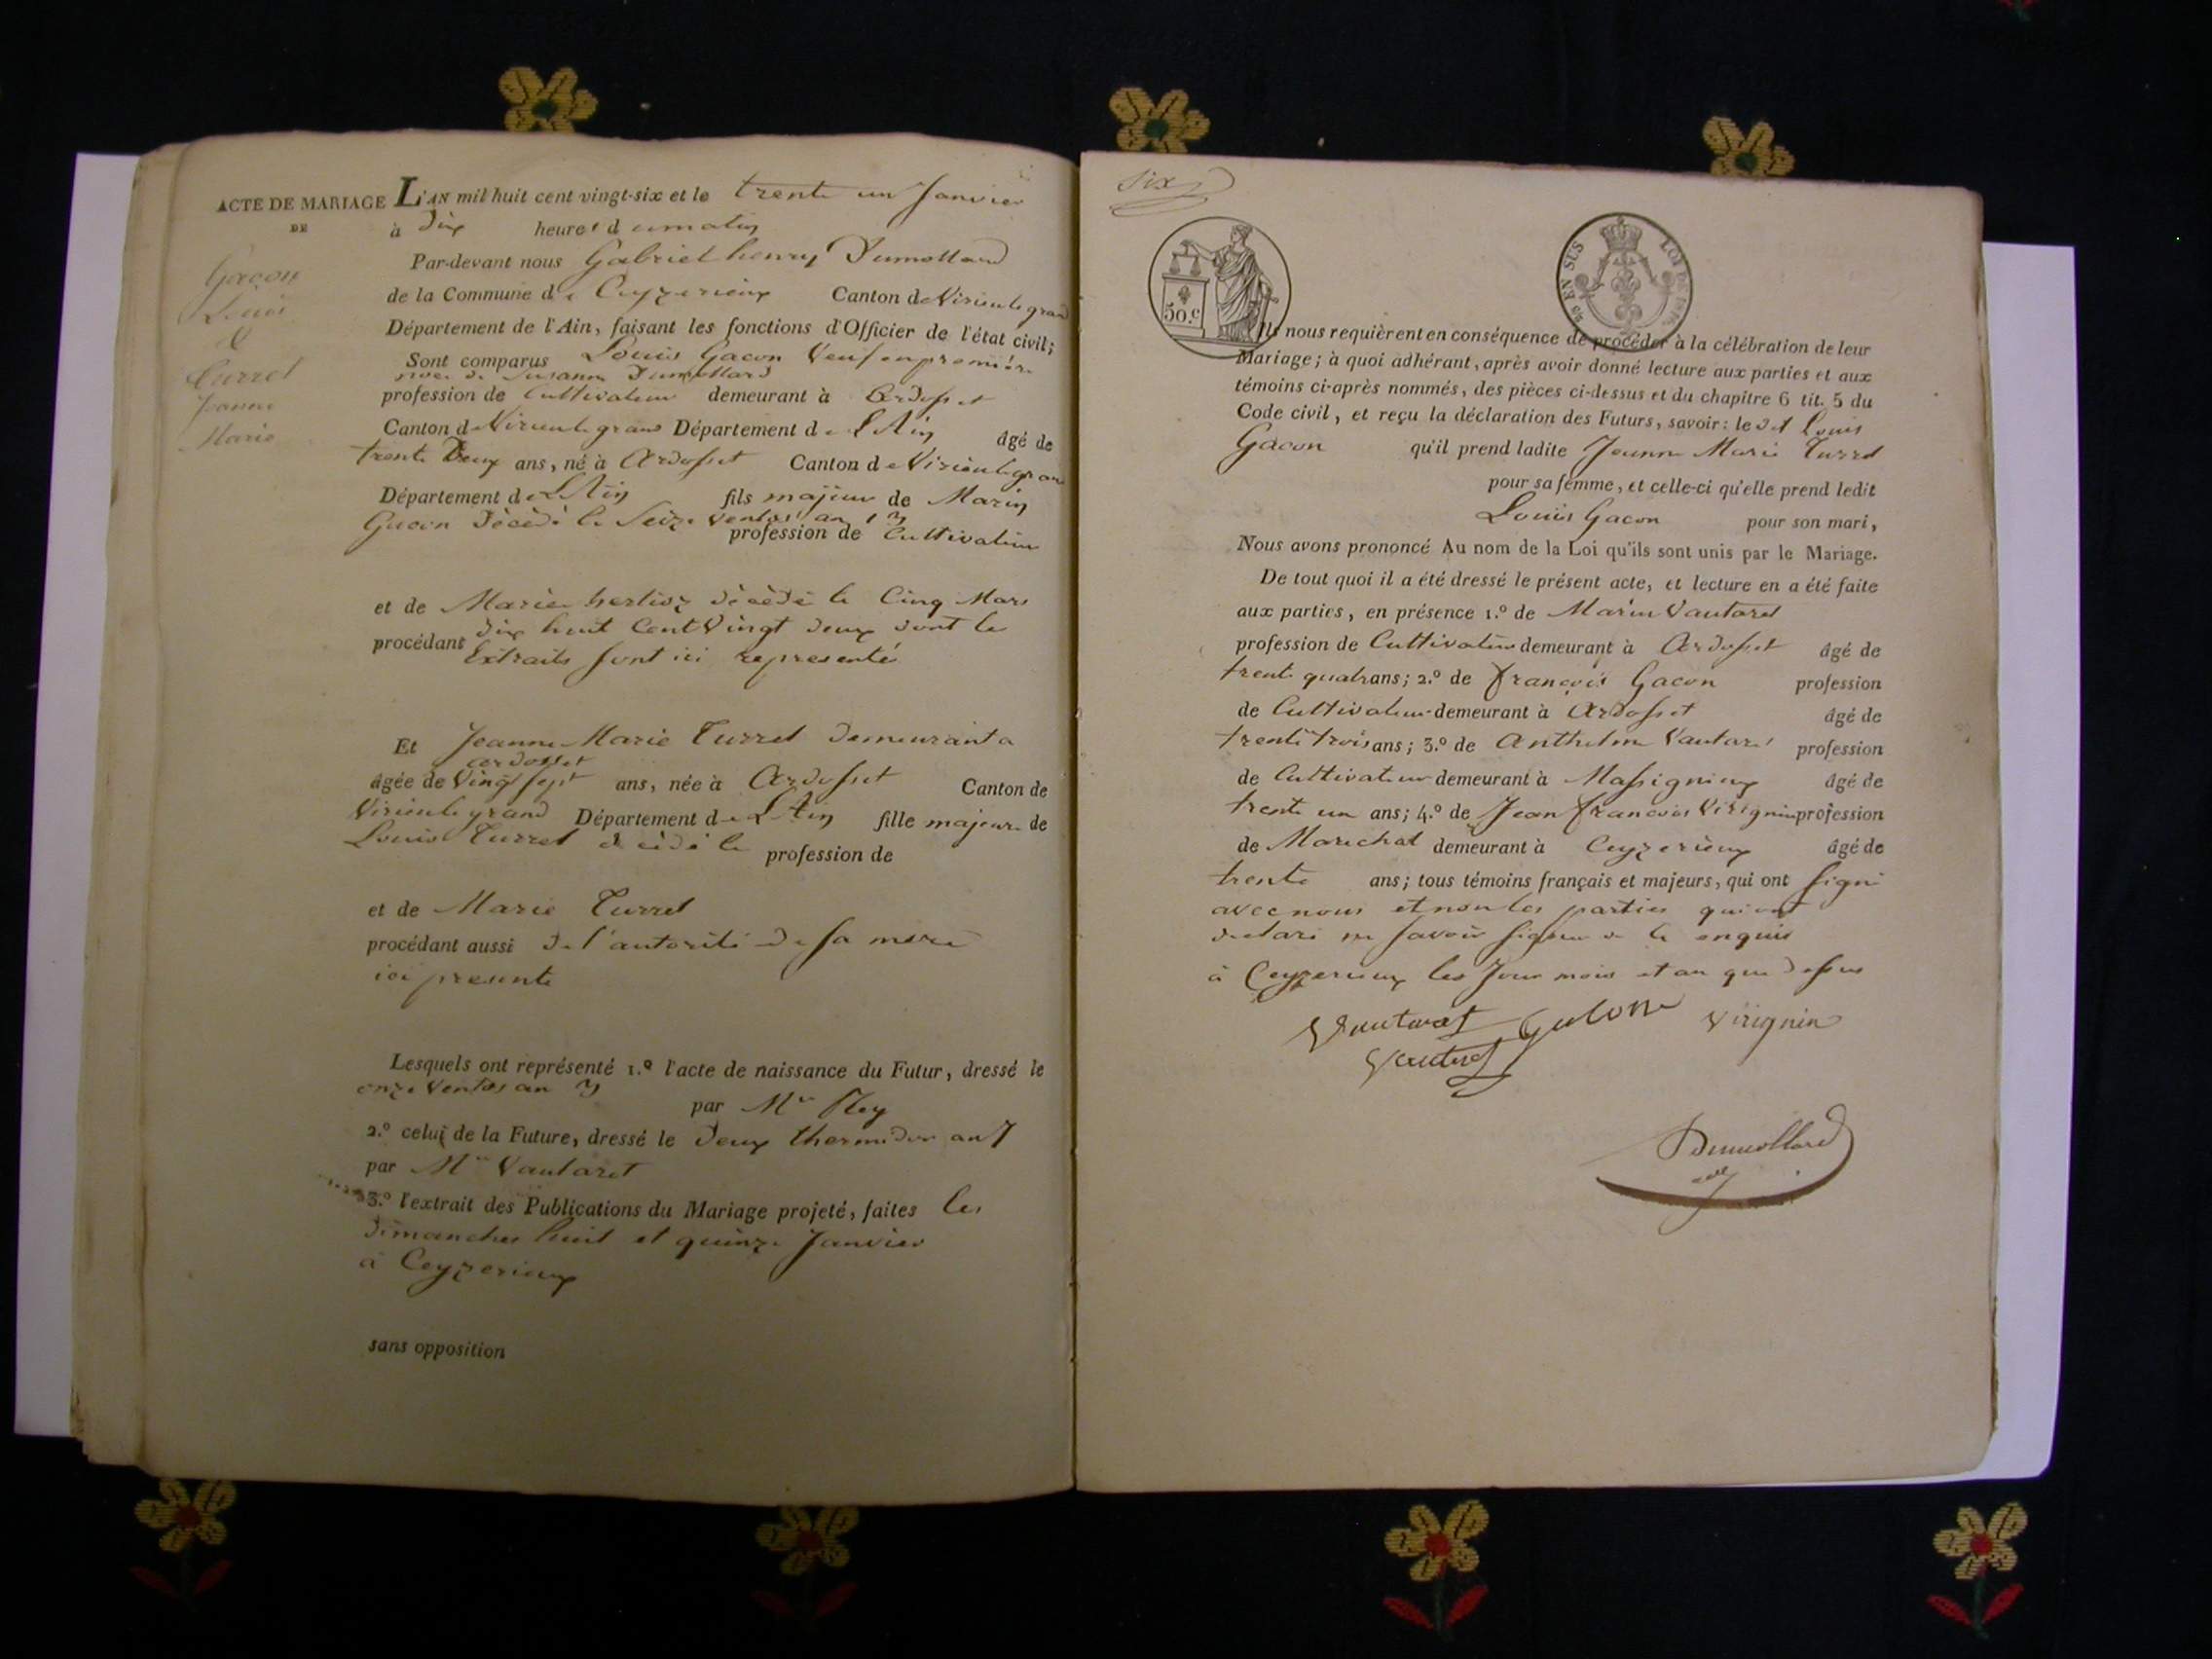 ACTE DE MARIAGE
DE
Gacon
Louis
&
Turrel
Jeanne
Marie
L'AN mil huit cent vingt-six et le trente un Janvier
à dix heures du matin
Par-devant nous Gabriel henry Dumollard
de la Commune de Ceyzerieux Canton de Virieu le grand
Département de l'Ain, faisant les fonctions d'Officier de l'état civil;
Sont comparus Louis Gacon Veuf en premiére
noce de Susanne Dumollard
profession de Cultivateur demeurant à Ardosset
Canton de Virieu le grand Département de L'Ain âgé de
trente Deux ans, né à Ardosset Canton de Virieu le grand
Département de L'Ain fils majeur de Marin
Gacon Décédé le Seize Ventos an 13
profession de Cultivateur
et de Marie décédé le Cinq Mars
dix huit Cent Vingt deux dont le
procédant Extraits sont ici representés
Et Jeanne Marie Turrel Demeurant a
ardosset
âgée de Vingt sept ans, née à Ardosset Canton de
Virieu le grand Département de L'Ain fille majeure de
Louis Turrel décédé le profession de
et de Marie Turrel
procédant aussi de l'autorité de sa mere
ici presente
Lesquels ont représenté 1.º l'acte de naissance du Futur, dressé le
onze Ventos an
par Mr
2.º celui de la Future, dressé le Deux thermidor an 7
par Mr Vautaret
3.º l'extrait des Publications du Mariage projeté, faites les
Dimanches huit et quinze Janvier
à Ceyzerieux
sans opposition
Six
50.c
EN SUS LOI DE
Ils nous requièrent en conséquence de procéder à la célébration de leur
Mariage; à quoi adhérant, après avoir donné lecture aux parties et aux
témoins ci-après nommés, des pièces ci-dessus et du chapitre 6 tit. 5 du
Code civil, et reçu la déclaration des Futurs, savoir: le dit Louis
Gacon qu'il prend ladite Jeanne Marie Turrel
pour sa femme, et celle-ci qu'elle prend ledit
Louis Gacon pour son mari,
Nous avons prononcé Au nom de la Loi qu'ils sont unis par le Mariage.
De tout quoi il a été dressé le présent acte, et lecture en a été faite
aux parties, en présence 1.º de Marin Vautaret
profession de Cultivateur demeurant à Ardosset âgé de
trente quatr ans; 2.º de françois Gacon profession
de Cultivateur demeurant à Ardosset âgé de
trente trois ans; 3.º de Anthelme Vautaret profession
de Cultivateur demeurant à Massignieux âgé de
trente un ans; 4.º de Jean francois Virignin profession
de Marechal demeurant à Ceyzerieux âgé de
trente ans; tous témoins français et majeurs, qui ont signé
avec nous et non les parties qui ont
declaré ne savoir signer de ce enquis
à Ceyzerieux les Jour mois et an que dessus
Vautaret Gacon Virignin
Vautaret
Dumollard